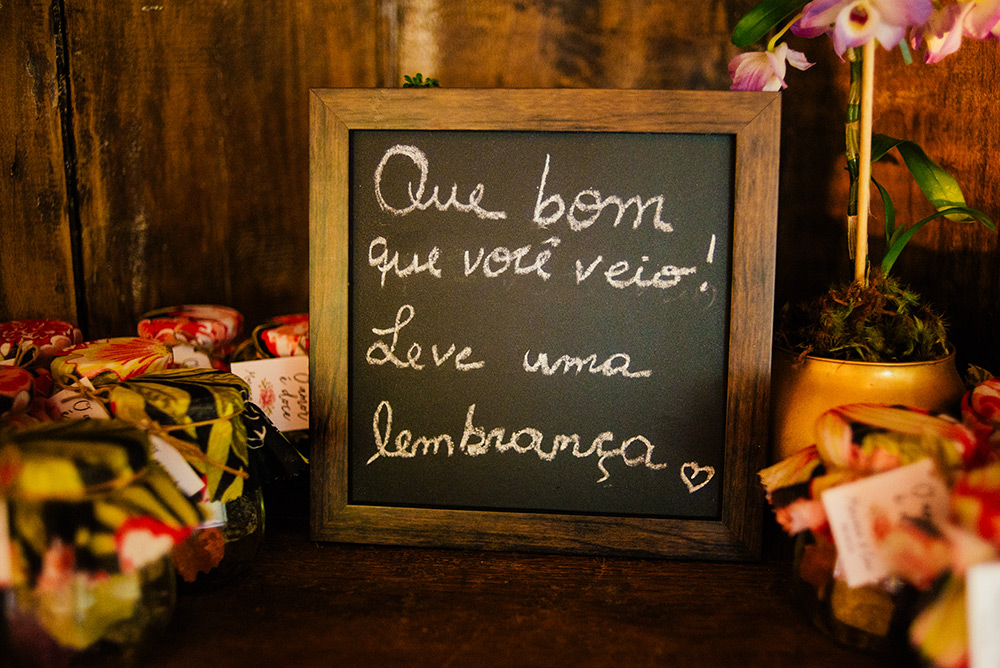 Que bom
que você veio!
Leve uma
lembrança
O amor
é doce